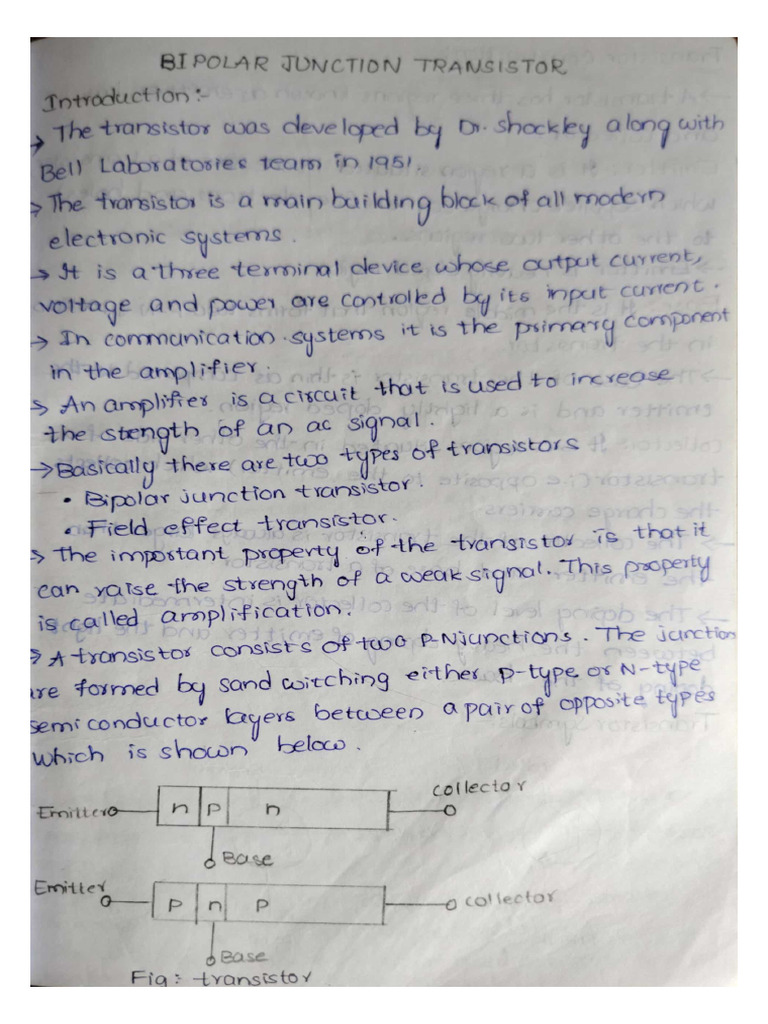 BIPOLAR JUNCTION TRANSISTOR
Introduction:-
→ The transistor was developed by Dr. Shockley along with
Bell Laboratories team in 1951.
→ The transistor is a main building block of all modern
electronic systems.
→ It is a three terminal device whose output current,
voltage and power are controlled by its input current.
→ In communication systems it is the primary component
in the amplifier.
→ An amplifier is a circuit that is used to increase
the stength of an ac signal.
→ Basically there are two types of transistors
• Bipolar junction transistor.
• Field effect transistor.
→ The important property of the transistor is that it
can raise the strength of a weak signal. This property
is called amplification.
→ A transistor consists of two P-N junctions. The junction
are formed by sand witching either p-type or N-type
semi conductor layers between a pair of opposite types
which is shown below.
Emitter n p n collector
Base
Emitter p n p collector
Base
Fig:- transistor